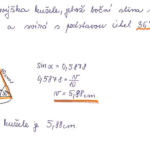 výška kužele, jehož boční stěna
a svírá s podstavou úhel 36°
sin α = 0,5878
0,5878 = v/10
v = 5,88 cm
kužele je 5,88 cm.